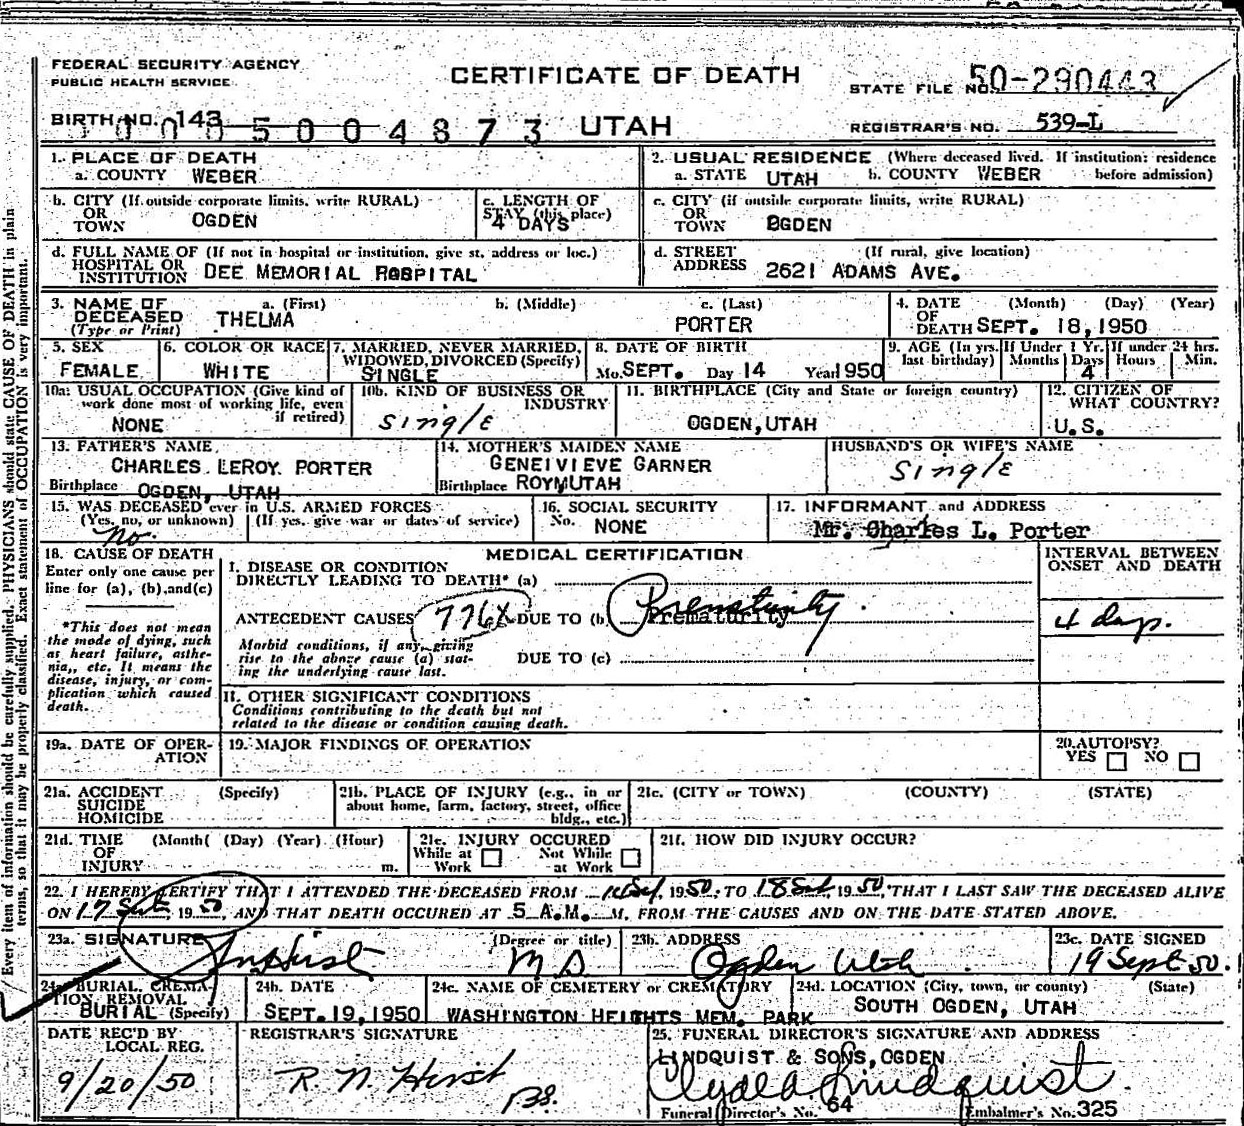 FEDERAL SECURITY AGENCY
PUBLIC HEALTH SERVICE
CERTIFICATE OF DEATH
STATE FILE NO. 50-290443
BIRTH NO. 143
0005004873
UTAH
REGISTRAR'S NO. 539-L
1. PLACE OF DEATH
a. COUNTY WEBER
2. USUAL RESIDENCE (Where deceased lived. If institution: residence
a. STATE UTAH b. COUNTY WEBER before admission)
b. CITY (If outside corporate limits, write RURAL)
OR
TOWN OGDEN
c. LENGTH OF
STAY (this place)
4 DAYS
c. CITY (if outside corporate limits, write RURAL)
OR
TOWN OGDEN
d. FULL NAME OF (If not in hospital or institution, give st. address or loc.)
HOSPITAL OR
INSTITUTION DEE MEMORIAL HOSPITAL
d. STREET (If rural, give location)
ADDRESS 2621 ADAMS AVE.
3. NAME OF
DECEASED
(Type or Print)
a. (First) b. (Middle) c. (Last)
THELMA PORTER
4. DATE (Month) (Day) (Year)
OF
DEATH SEPT. 18, 1950
5. SEX
FEMALE
6. COLOR OR RACE
WHITE
7. MARRIED, NEVER MARRIED,
WIDOWED, DIVORCED (Specify)
SINGLE
8. DATE OF BIRTH
Mo. SEPT. Day 14 Year 1950
9. AGE (In yrs.
last birthday)
If Under 1 Yr.
Months Days
4
If under 24 hrs.
Hours Min.
10a. USUAL OCCUPATION (Give kind of
work done most of working life, even
if retired)
NONE
10b. KIND OF BUSINESS OR
INDUSTRY
Single
11. BIRTHPLACE (City and State or foreign country)
OGDEN, UTAH
12. CITIZEN OF
WHAT COUNTRY?
U.S.
13. FATHER'S NAME
CHARLES LEROY PORTER
Birthplace OGDEN, UTAH
14. MOTHER'S MAIDEN NAME
GENEIVIEVE GARNER
Birthplace ROYMUTAH
HUSBAND'S OR WIFE'S NAME
Single
15. WAS DECEASED ever in U.S. ARMED FORCES
(Yes, no, or unknown) (If yes, give war or dates of service)
no.
16. SOCIAL SECURITY
No. NONE
17. INFORMANT and ADDRESS
Mr. Charles L. Porter
18. CAUSE OF DEATH
Enter only one cause per
line for (a), (b), and (c)
*This does not mean
the mode of dying, such
as heart failure, asthe-
nia, etc. It means the
disease, injury, or com-
plication which caused
death.
MEDICAL CERTIFICATION
I. DISEASE OR CONDITION
DIRECTLY LEADING TO DEATH* (a)
ANTECEDENT CAUSES 776X DUE TO (b) Prematurity
Prematurity
Morbid conditions, if any, giving
rise to the above cause (a) stat-
ing the underlying cause last.
DUE TO (c)
INTERVAL BETWEEN
ONSET AND DEATH
4 days.
II. OTHER SIGNIFICANT CONDITIONS
Conditions contributing to the death but not
related to the disease or condition causing death.
19a. DATE OF OPER-
ATION
19. MAJOR FINDINGS OF OPERATION
20. AUTOPSY?
YES NO
21a. ACCIDENT (Specify)
SUICIDE
HOMICIDE
21b. PLACE OF INJURY (e.g., in or
about home, farm, factory, street, office
bldg., etc.)
21c. (CITY or TOWN) (COUNTY) (STATE)
21d. TIME (Month( (Day) (Year) (Hour)
OF
INJURY m.
21e. INJURY OCCURED
While at Not While
Work at Work
21f. HOW DID INJURY OCCUR?
22. I HEREBY CERTIFY THAT I ATTENDED THE DECEASED FROM 14 Sept, 1950, TO 18 Sept, 1950, THAT I LAST SAW THE DECEASED ALIVE
ON 17 Sept 1950, AND THAT DEATH OCCURED AT 5 A.M. M. FROM THE CAUSES AND ON THE DATE STATED ABOVE.
23a. SIGNATURE (Degree or title)
Hirst MD
23b. ADDRESS
Ogden Utah
23c. DATE SIGNED
19 Sept 50.
24a. BURIAL, CREMA-
TION REMOVAL
BURIAL (Specify)
24b. DATE
SEPT. 19, 1950
24c. NAME OF CEMETERY or CREMATORY
WASHINGTON HEIGHTS MEM. PARK
24d. LOCATION (City, town, or county) (State)
SOUTH OGDEN, UTAH
DATE REC'D BY
LOCAL REG.
9/20/50
REGISTRAR'S SIGNATURE
R. N. Hirst
Bs.
25. FUNERAL DIRECTOR'S SIGNATURE AND ADDRESS
LINDQUIST & SONS, OGDEN
Clyde A Lindquist
Funeral Director's No. 64 Embalmer's No. 325
Every item of information should be carefully supplied. PHYSICIANS should state CAUSE OF DEATH in plain
terms, so that it may be properly classified. Exact statement of OCCUPATION is very important.